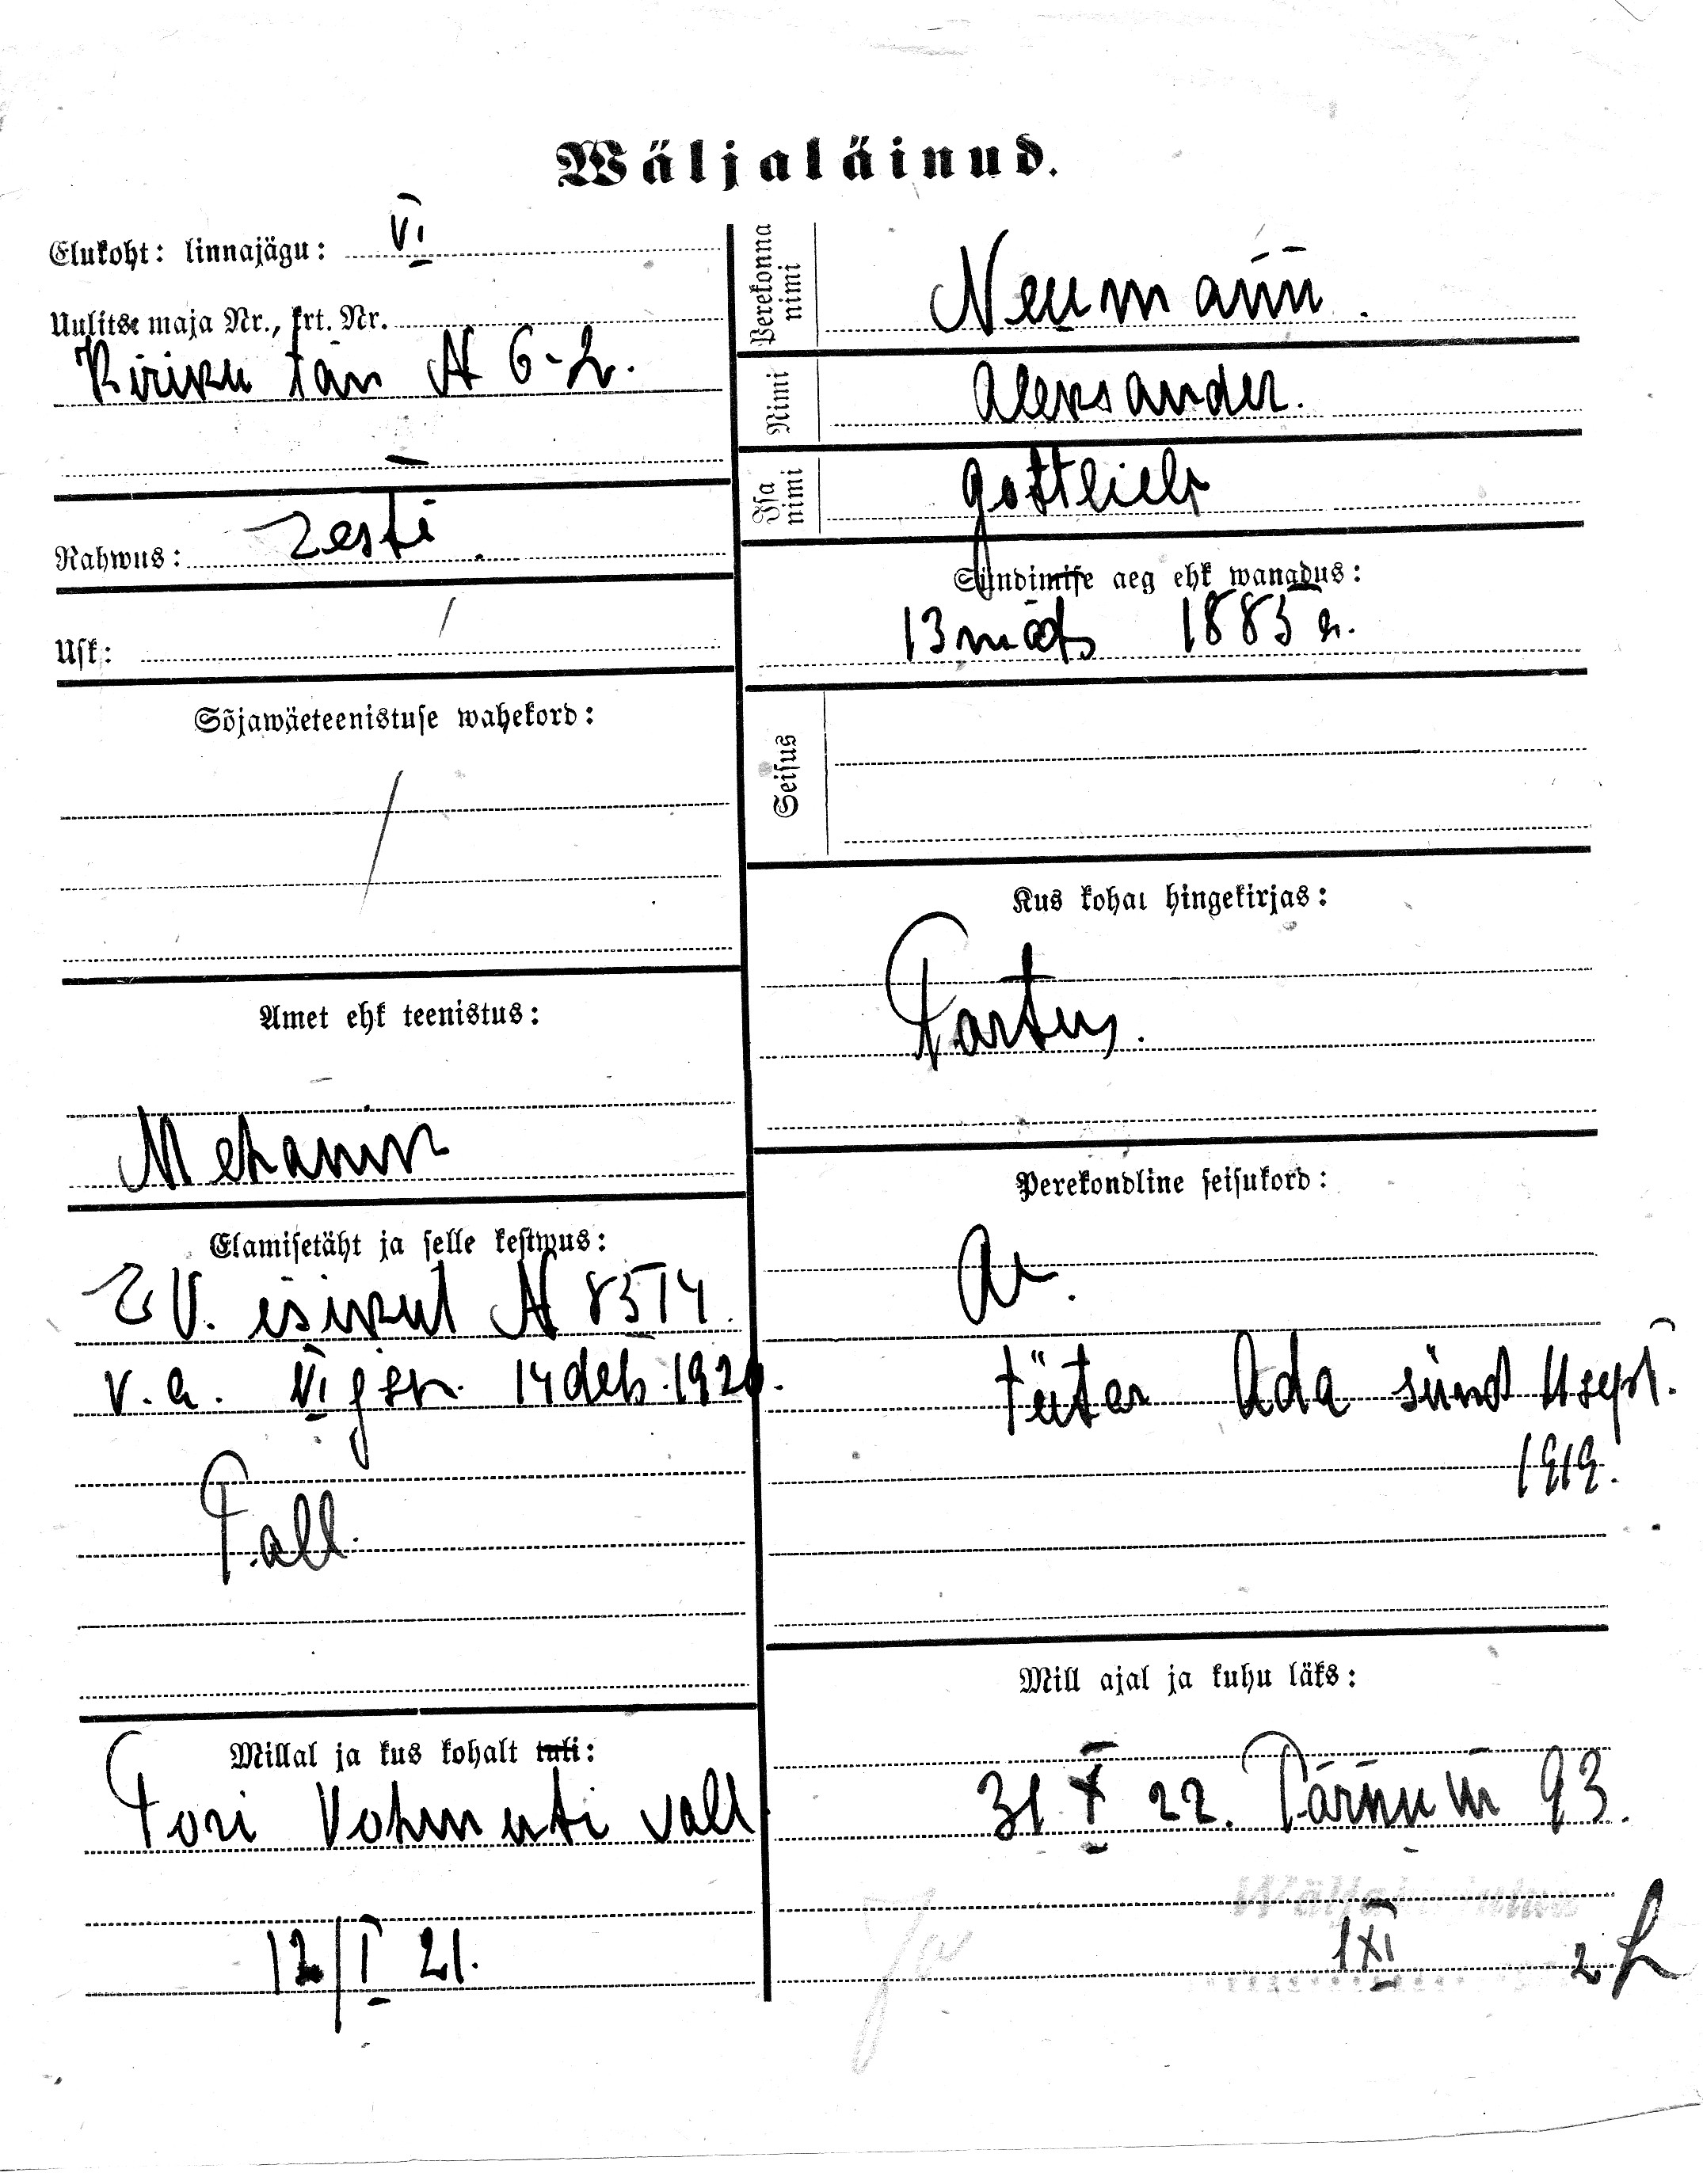 Wäljaläinud.
Elukoht: linnajägu: VI
Uulitse maja Nr., krt. Nr.
Kiriku tän N 6-2.
Rahwus: Eesti.
Usk: /
Sõjawäeteenistuse wahekord:
/
Amet ehk teenistus:
Mehanik
Elamisetäht ja selle kestwus:
E V. isikut N 8514.
v. a. VI jsk. 14 deb. 1920.
Tall.
Millal ja kus kohalt tuli:
Tori Vohmuti vall
12/I 21.
Perekonna nimi
Neumann.
Nimi
Aleksander.
Isa nimi
Gottlieb
Sündimise aeg ehk wanadus:
13 märts 1885 a.
Seisus
Kus kohal hingekirjas:
Tartus.
Perekondline seisukord:
Ab.
tütar Ada sünd 11 sept.
1919.
Mill ajal ja kuhu läks:
31 X 22. Pärnu m 93.
1 XI